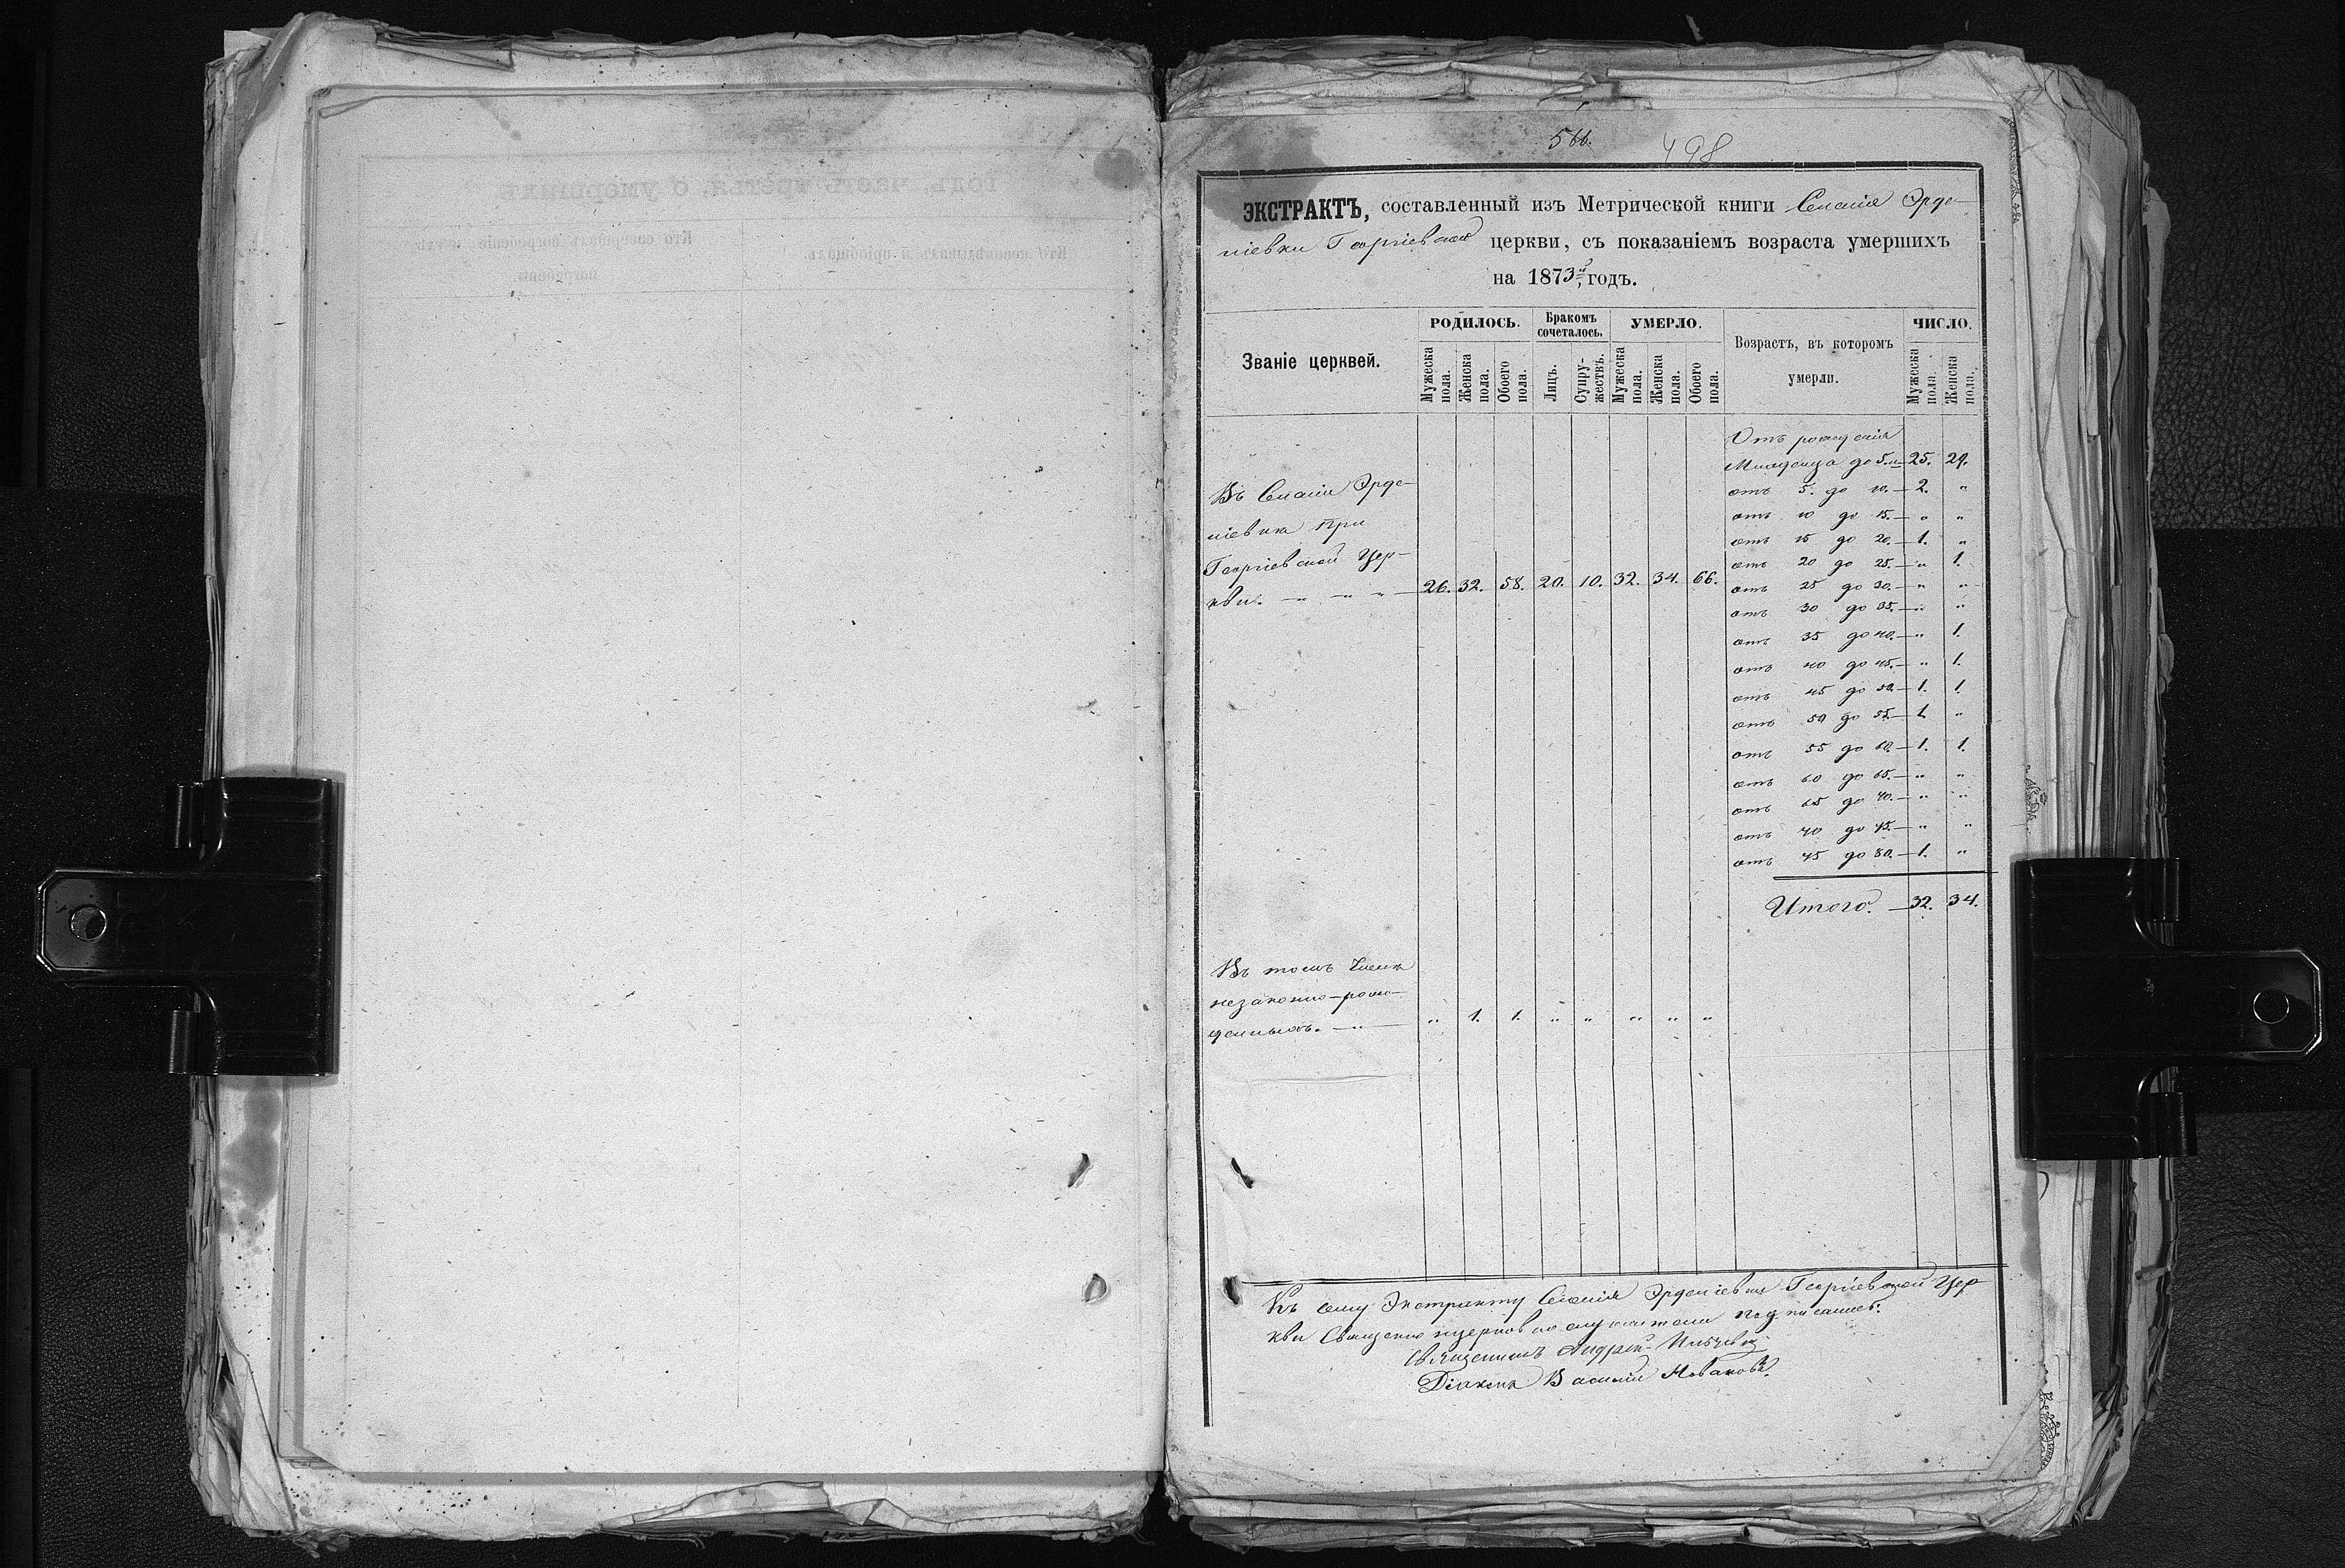 566.
498
ЭКСТРАКТЪ, составленный изъ Метрической книги Селенія Эрде-
ніевки Георгіевской церкви, съ показаніемъ возраста умершихъ
на 1873й годъ.
Званіе церквей.
РОДИЛОСЬ.
Мужеска пола.
Женска пола.
Обоего пола.
Бракомъ сочеталось.
Лицъ.
Супружествъ.
УМЕРЛО.
Мужеска пола.
Женска пола.
Обоего пола.
Возрастъ, въ которомъ
умерли.
ЧИСЛО.
Мужеска пола.
Женска пола.
Въ Селеніи Эрде-
ніевка при
Георгіевской Цер-
кви. — „ — „ — 26. 32. 58. 20. 10. 32. 34. 66.
Отъ рожденія
Младенца до 5. — 25. 29.
отъ 5. до 10. — 2. „
отъ 10 до 15. — „ „
отъ 15 до 20. — 1. „
отъ 20 до 25. — „ 1.
отъ 25 до 30. — „ „
отъ 30 до 35. — „ „
отъ 35 до 40. — „ 1.
отъ 40 до 45. — „ 1.
отъ 45 до 50. — 1. 1.
отъ 50 до 55. — 1. „
отъ 55 до 60. — 1. 1.
отъ 60 до 65. — „ „
отъ 65 до 70. — „ „
отъ 70 до 75. — „ „
отъ 75 до 80. — 1. „
Итого. — 32. 34.
Въ томъ числѣ
незаконно-рож-
денныхъ. — „ — „ 1. 1. „ „ „ „ „
Къ сему Экстракту Селенія Эрденіевки Георгіевской Цер
кви Священно церковно служители подписались:
Священникъ Андрей
Діаконъ Василій